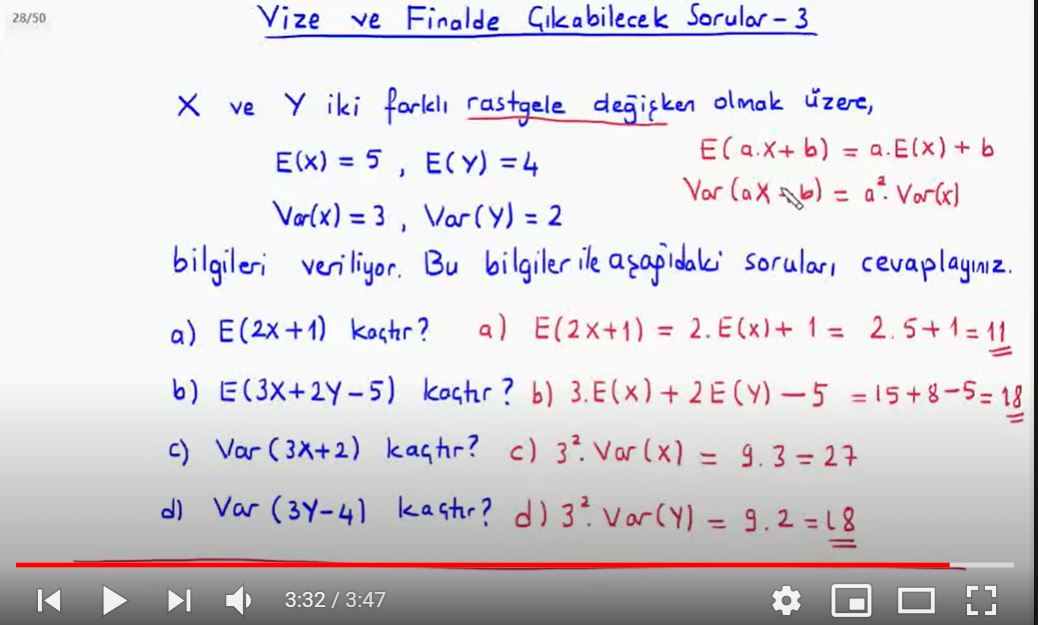 28/50
Vize ve Finalde Çıkabilecek Sorular-3
X ve Y iki farklı rastgele değişken olmak üzere,
E(x) = 5 , E(Y) = 4
E(a.X+b) = a.E(x)+b
Var(x) = 3 , Var(Y) = 2
Var(aX+b) = a². Var(x)
bilgileri veriliyor. Bu bilgiler ile aşağıdaki soruları cevaplayınız.
a) E(2x+1) kaçtır? a) E(2x+1) = 2.E(x)+1 = 2.5+1=11
b) E(3X+2Y-5) kaçtır? b) 3.E(x)+2E(Y)-5 =15+8-5=18
c) Var(3X+2) kaçtır? c) 3². Var(x) = 9.3=27
d) Var(3Y-4) kaçtır? d) 3². Var(Y) = 9.2=18
3:32 / 3:47